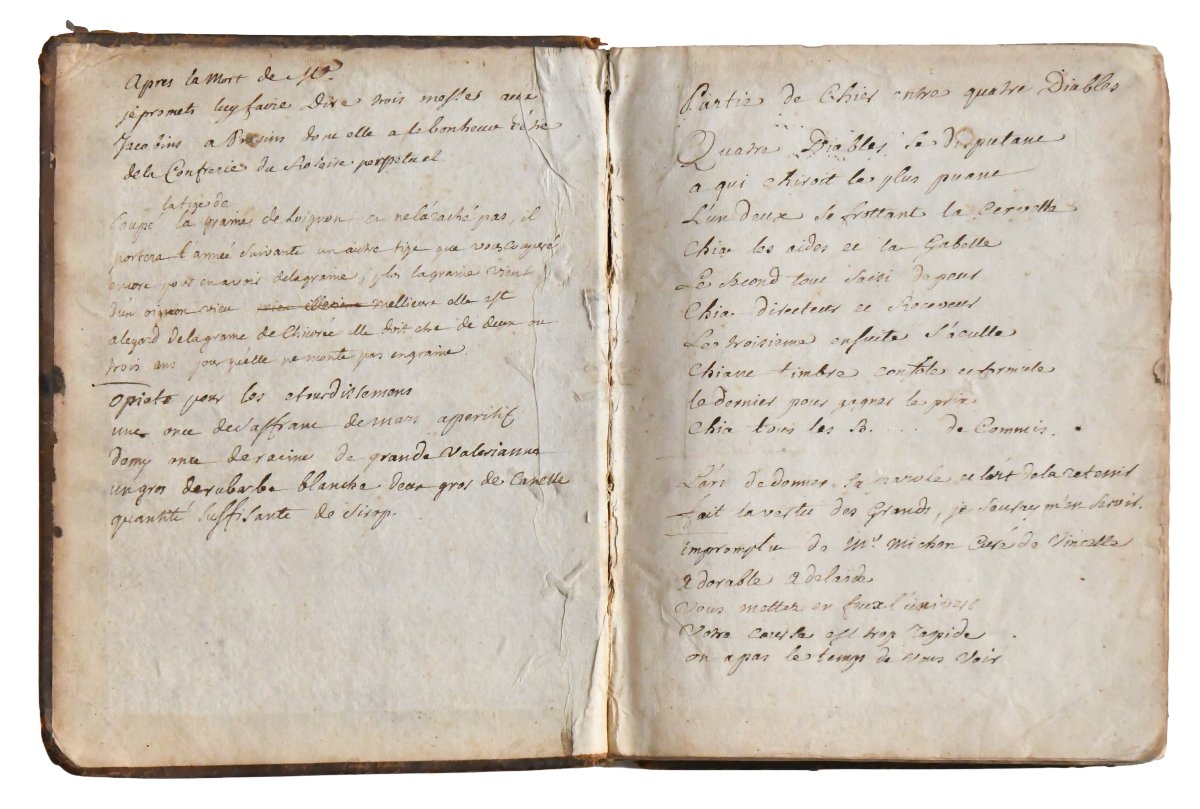 Apres la mort de Mr.
je promets luy faire Dire trois messes aux
Jacobins a Provins dont elle a le bonheur d'être
de la Confrerie du Rosaire perpetuel
la tige de
Coupé la graine de loignon et ne larachés pas, il
portera l'année suivante un autre tige que vous couperés
encore pour en avoir delagraine, plus lagraine vient
d'un oignon vieu mellieure elle est
alegard delagraine de Chicorée elle doit etre de deux ou
trois ans pour quelle ne monte pas engraine.
opiate pour les etourdissemens
une once de saffrant de mars aperitif
demy once deracine de grande Valerianne
un gros derubarbe blanche deux gros de Canelle
quantité suffisante de sirop.
Partie de Chier entre quatre Diables
Quatre Diables se disputant
a qui chiroit le plus puant
L'un deux se frottant la Cervelle
Chia les aides et la Gabelle
Le second tout saisi de peur
Chia directeur et Receveur
Le troisieme ensuite s'aculle
Chiant timbre contrôle et formule
le dernier pour gagner le prix
Chia tous les B.... de Commis.
L'art de donner sa parole et l'art de la retenir
fait la vertu des Grands, je sauray m'en servir.
impromptu de Mr. Michon Curé de Vincelle
adorable adelaide
Vous mettez en feux l'univers
Votre course est trop rapide
on a pas le temps de vous voir